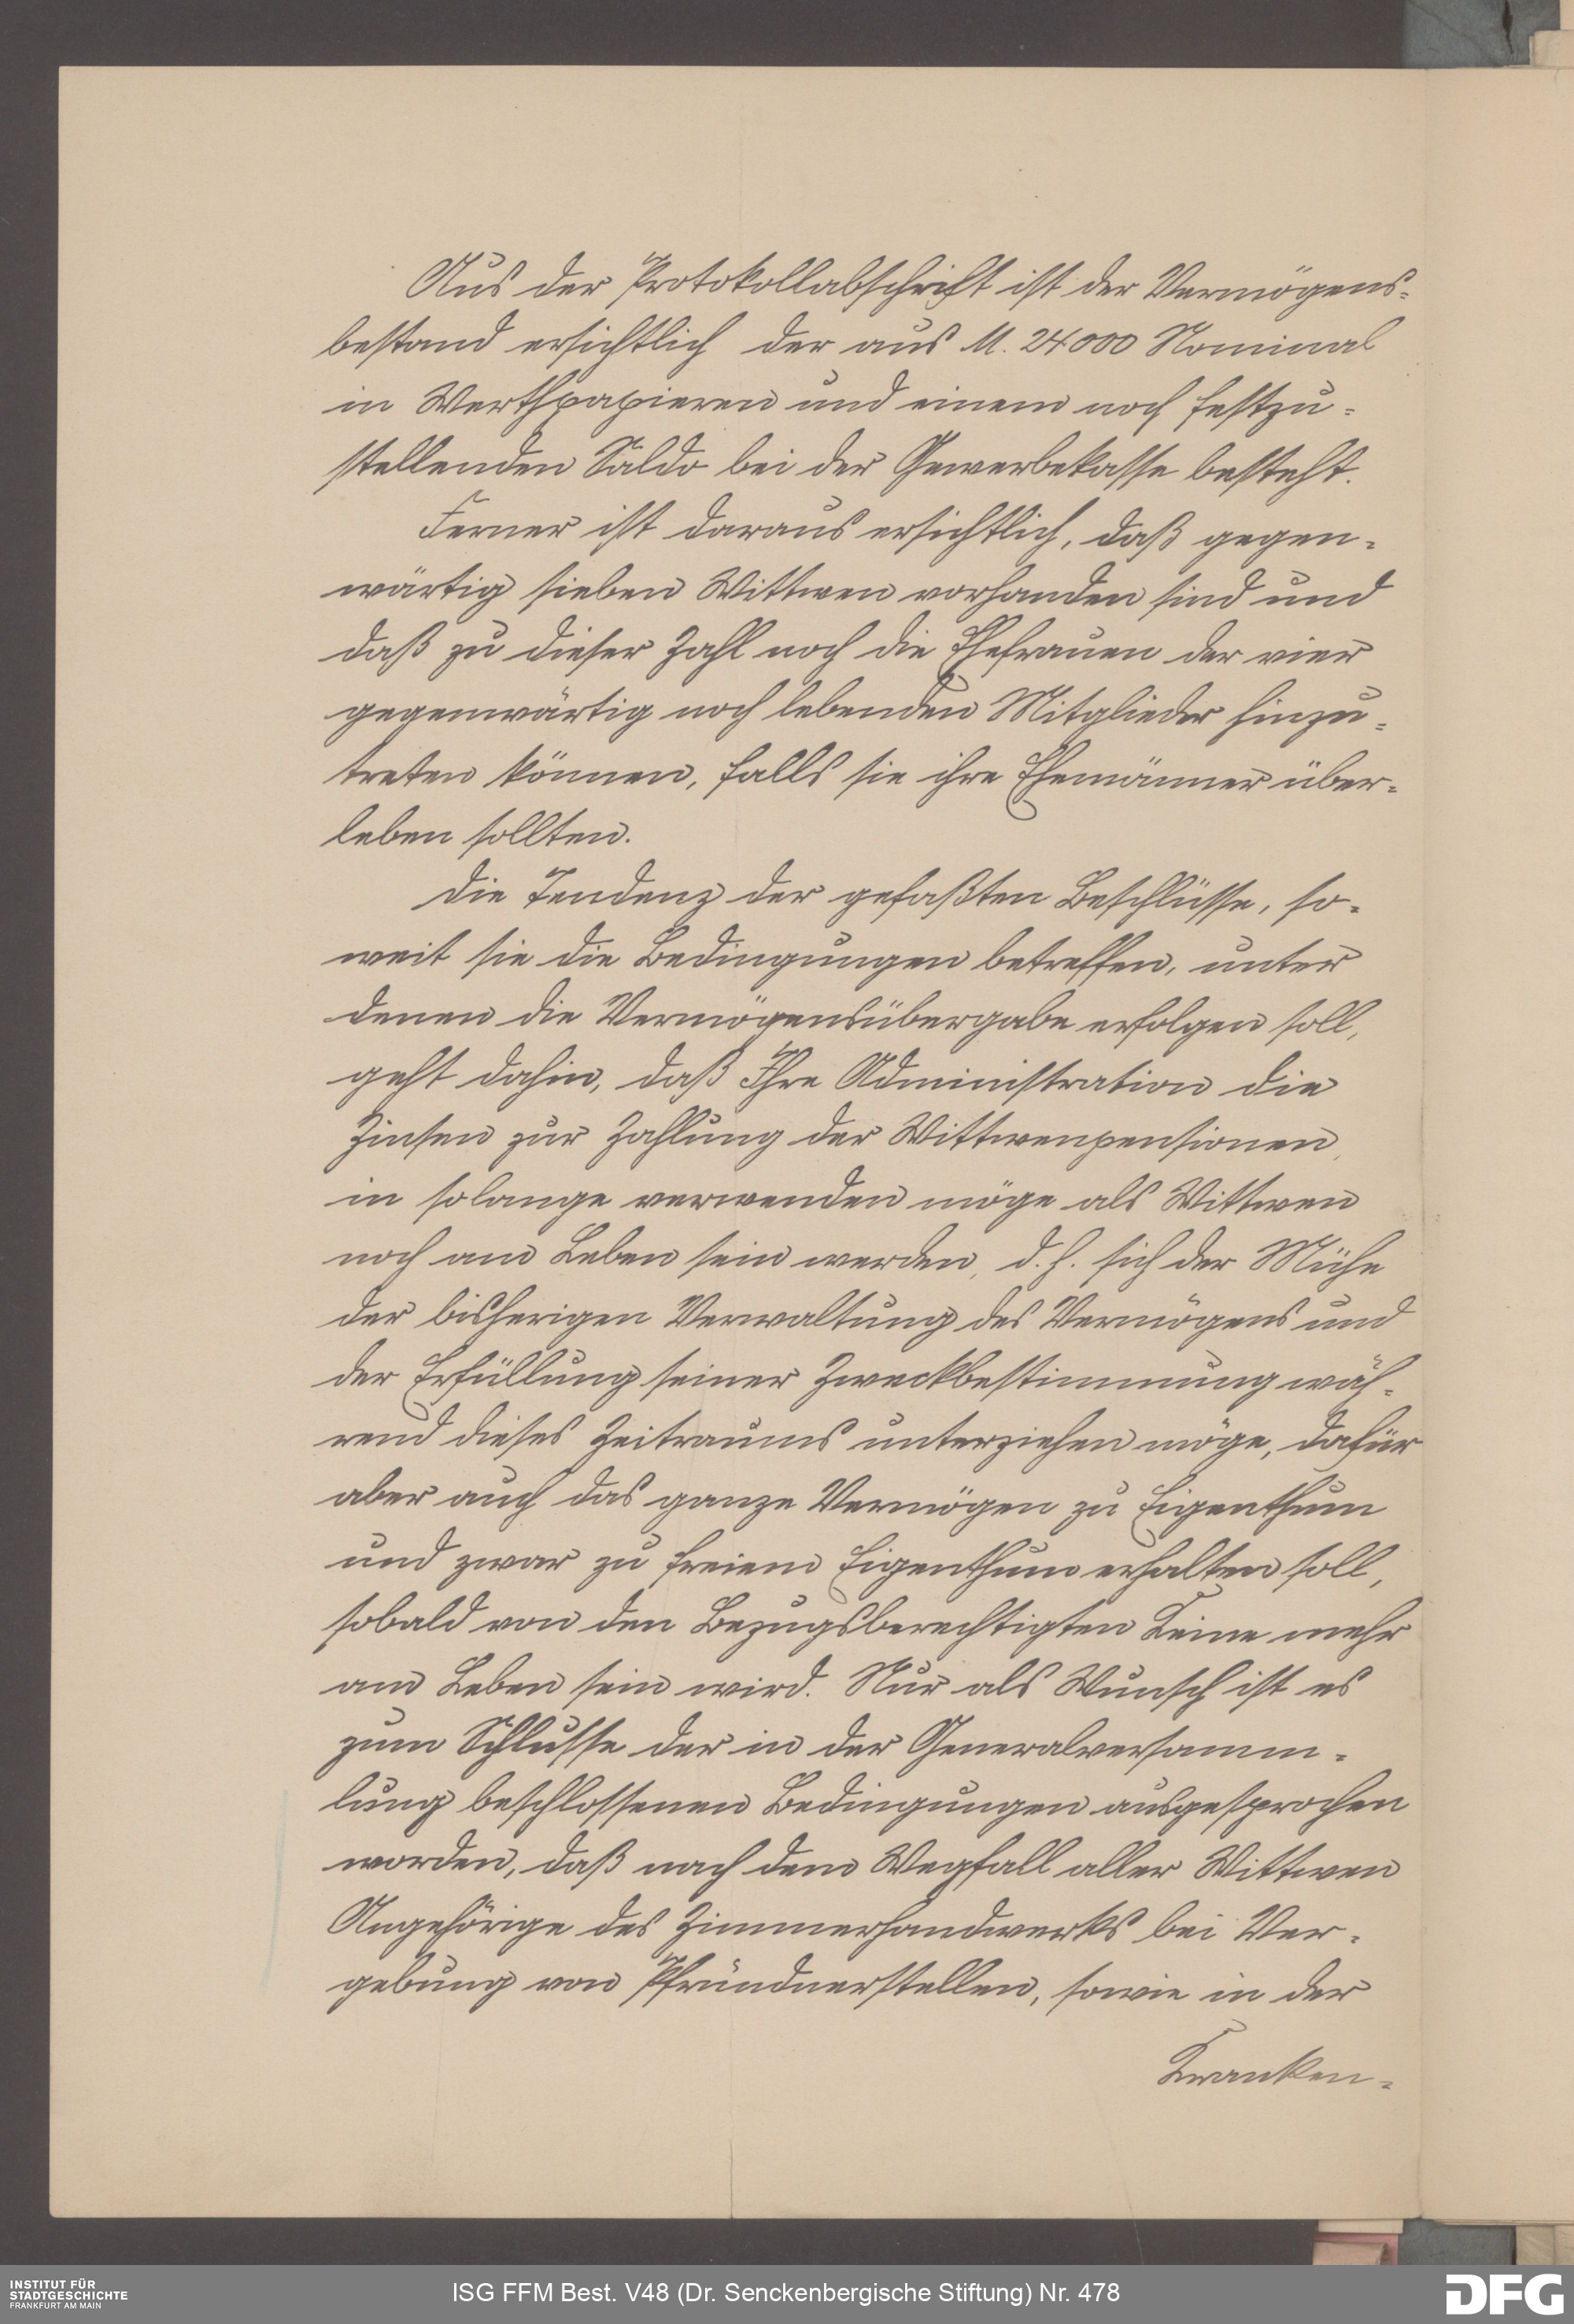 Aus der Protokollabschrift ist der Vermögens-
bestand ersichtlich der aus M. 24000 Nominal
in Werthpapieren und einem noch festzu-
stellenden Saldo bei der Gewerbekasse besteht.
Ferner ist daraus ersichtlich, daß gegen-
wärtig sieben Wittwen vorhanden sind und
daß zu dieser Zahl noch die Ehefrauen der vier
gegenwärtig noch lebenden Mitglieder hinzu-
treten können, falls sie ihre Ehemänner über-
leben sollten.
Die Tendenz der gefaßten Beschlüsse, so-
weit sie die Bedingungen betreffen, unter
denen die Vermögensübergabe erfolgen soll,
geht dahin, daß Ihre Administration die
Zinsen zur Zahlung der Wittwenpensionen,
in solange verwenden möge als Wittwen
noch am Leben sein werden, d. h. sich der Mühe
der bisherigen Verwaltung des Vermögens und
der Erfüllung seiner Zweckbestimmung wäh-
rend dieses Zeitraums unterziehen möge, dafür
aber auch das ganze Vermögen zu Eigenthum
und zwar zu freiem Eigenthum erhalten soll,
sobald von den Bezugsberechtigten Keine mehr
am Leben sein wird. Nur als Wunsch ist es
zum Schlusse der in der Generalversamm-
lung beschlossenen Bedingungen ausgesprochen
worden, daß nach dem Wegfall aller Wittwen
Angehörige des Zimmerhandwerks bei Ver-
gebung von Pfründnerstellen, sowie in der
Kranken-
INSTITUT FÜR
STADTGESCHICHTE
FRANKFURT AM MAIN
ISG FFM Best. V48 (Dr. Senckenbergische Stiftung) Nr. 478
DFG